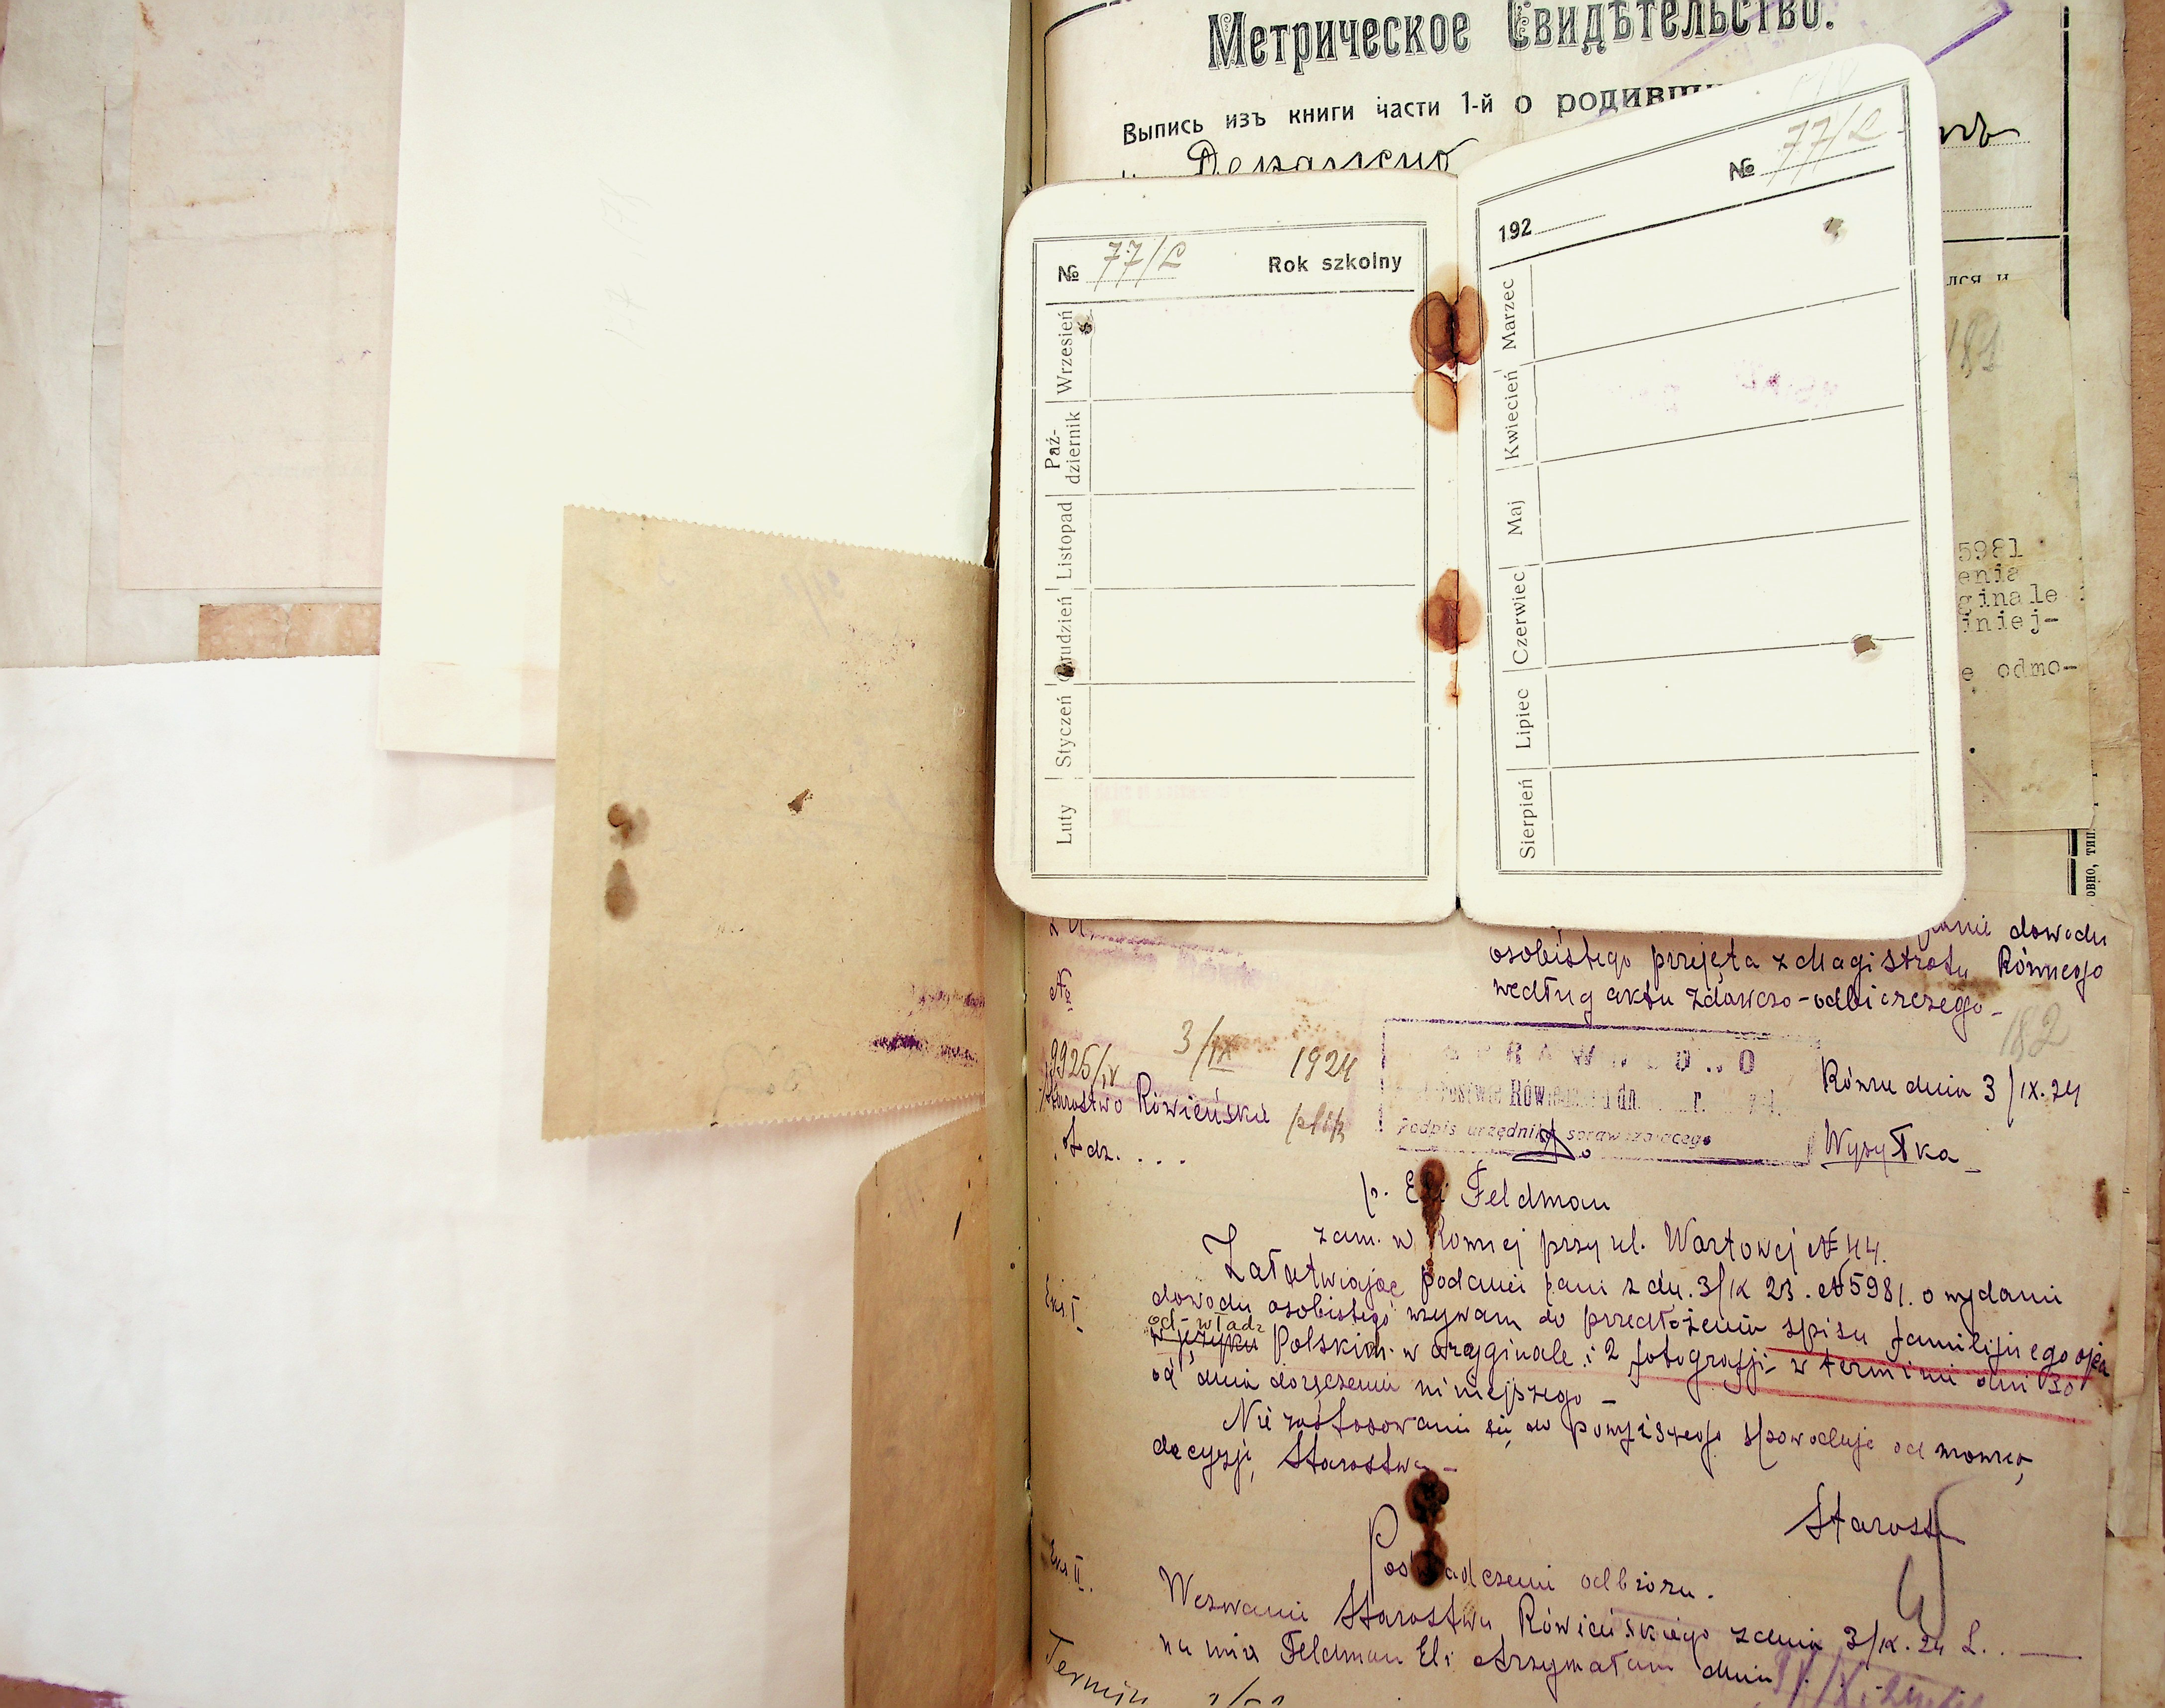 Метрическое Свидѣтельство.
Выпись изъ книги части 1-й о родивши
№ 77/L Rok szkolny
Wrzesień
Paź-
dziernik
Listopad
Grudzień
Styczeń
Luty
№ 77/L
192
Marzec
Kwiecień
Maj
Czerwiec
Lipiec
Sierpień
лся и
5981
enia
ginale
iniej-
e odmo-
овно, тип
dowodu
osobistego przejęta z Magistratu Równego
według aktu zdawczo-odbiorczego -
182
№
9925/IV 3/IX 1924
Starostwo Rówieńskie
L dz. . . .
Podpis urzędnika sprawdzającego
Równe dnia 3/IX.24
Wysyłka
p. Eli Feldman
zam. w Równej przy ul. Wartowej № 44.
Eks. I
Załatwiając podanei pani z dn. 3/IX 23. № 5981. o wydanie
dowodu osobistego wzywam do przedłożenia spisu familijnego ojca
od władz
w języku Polskich w oryginale i 2 fotografji w terminie dni 30
od dnia doręczenia niniejszego -
Nie zastosowanie się do powyższego spowoduje odmowną
decyzję Starostwa -
Starosta
Eks. II.
Poświadczenie odbioru.
Wezwanie Starostwa Rówieńskiego z dnia 3/IX. 24 L. . —
na imię Feldman Eli otrzymałam dnia
Termin